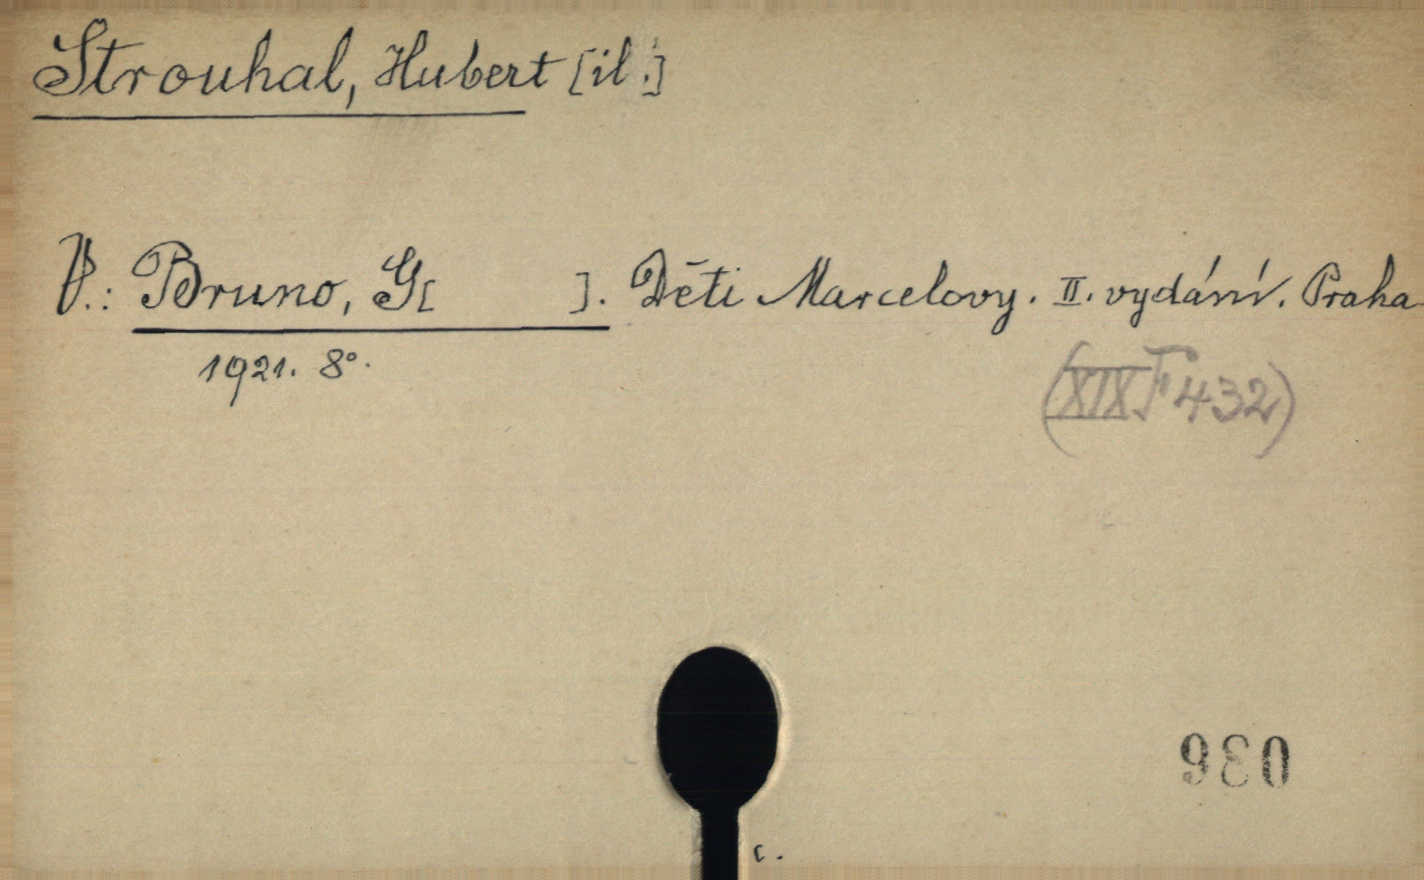 Strouhal, Hubert [il.]
V.: Bruno, G[ ]. Děti Marcelovy. II. vydání. Praha
1921. 8°.
(XIX F 432)
036
c.